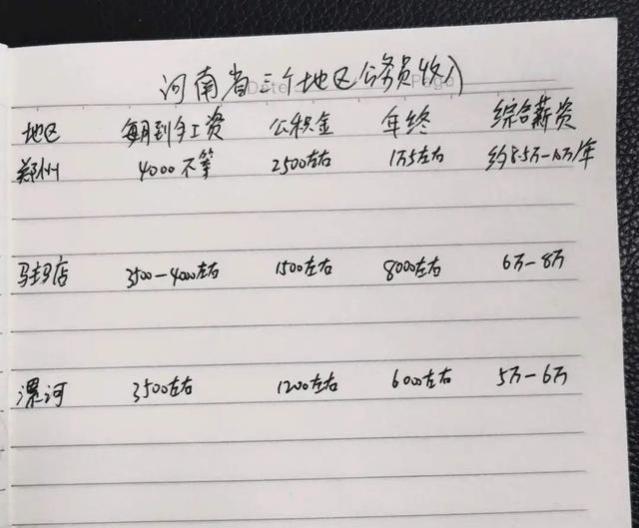 河南省三个地区公务员收入
地区 每月到手工资 公积金 年终 综合薪资
郑州 4000不等 2500左右 1万5左右 约8.5万-10万/年
马主马店 3500-4000左右 1500左右 8000左右 6万-8万
漯河 3500左右 1200左右 6000左右 5万-6万